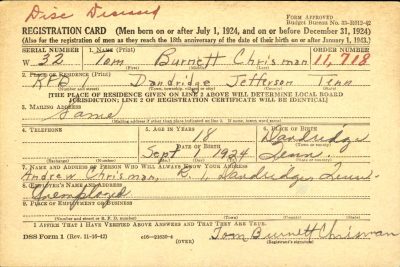 Disc Diseased
FORM APPROVED
Budget Bureau No. 33-R012-42
REGISTRATION CARD (Men born on or after July 1, 1924, and on or before December 31, 1924)
(Also for the registration of men as they reach the 18th anniversary of the date of their birth on or after January 1, 1943.)
SERIAL NUMBER 1. NAME (Print) ORDER NUMBER
W 32 Tom Burnett Chrisman 11,718
(First) (Middle) (Last)
2. PLACE OF RESIDENCE (Print)
RFD 1 Dandridge Jefferson Tenn
(Number and street) (Town, township, village, or city) (County) (State)
[THE PLACE OF RESIDENCE GIVEN ON LINE 2 ABOVE WILL DETERMINE LOCAL BOARD
JURISDICTION; LINE 2 OF REGISTRATION CERTIFICATE WILL BE IDENTICAL]
3. MAILING ADDRESS
Same
[Mailing address if other than place indicated on line 2. If same, insert word same]
4. TELEPHONE 5. AGE IN YEARS 6. PLACE OF BIRTH
18 Dandridge
DATE OF BIRTH (Town or county)
Sept 1924 Tenn.
(Exchange) (Number) (Mo.) (Day) (Yr.) (State or country)
7. NAME AND ADDRESS OF PERSON WHO WILL ALWAYS KNOW YOUR ADDRESS
Andrew Chrisman, R, 1, Dandridge, Tenn.
8. EMPLOYER'S NAME AND ADDRESS
Unemployed
9. PLACE OF EMPLOYMENT OR BUSINESS
(Number and street or R. F. D. number) (Town) (County) (State)
I AFFIRM THAT I HAVE VERIFIED ABOVE ANSWERS AND THAT THEY ARE TRUE.
DSS Form 1 (Rev. 11-16-42) (OVER) Tom Burnett Chrisman
(Registrant's signature)